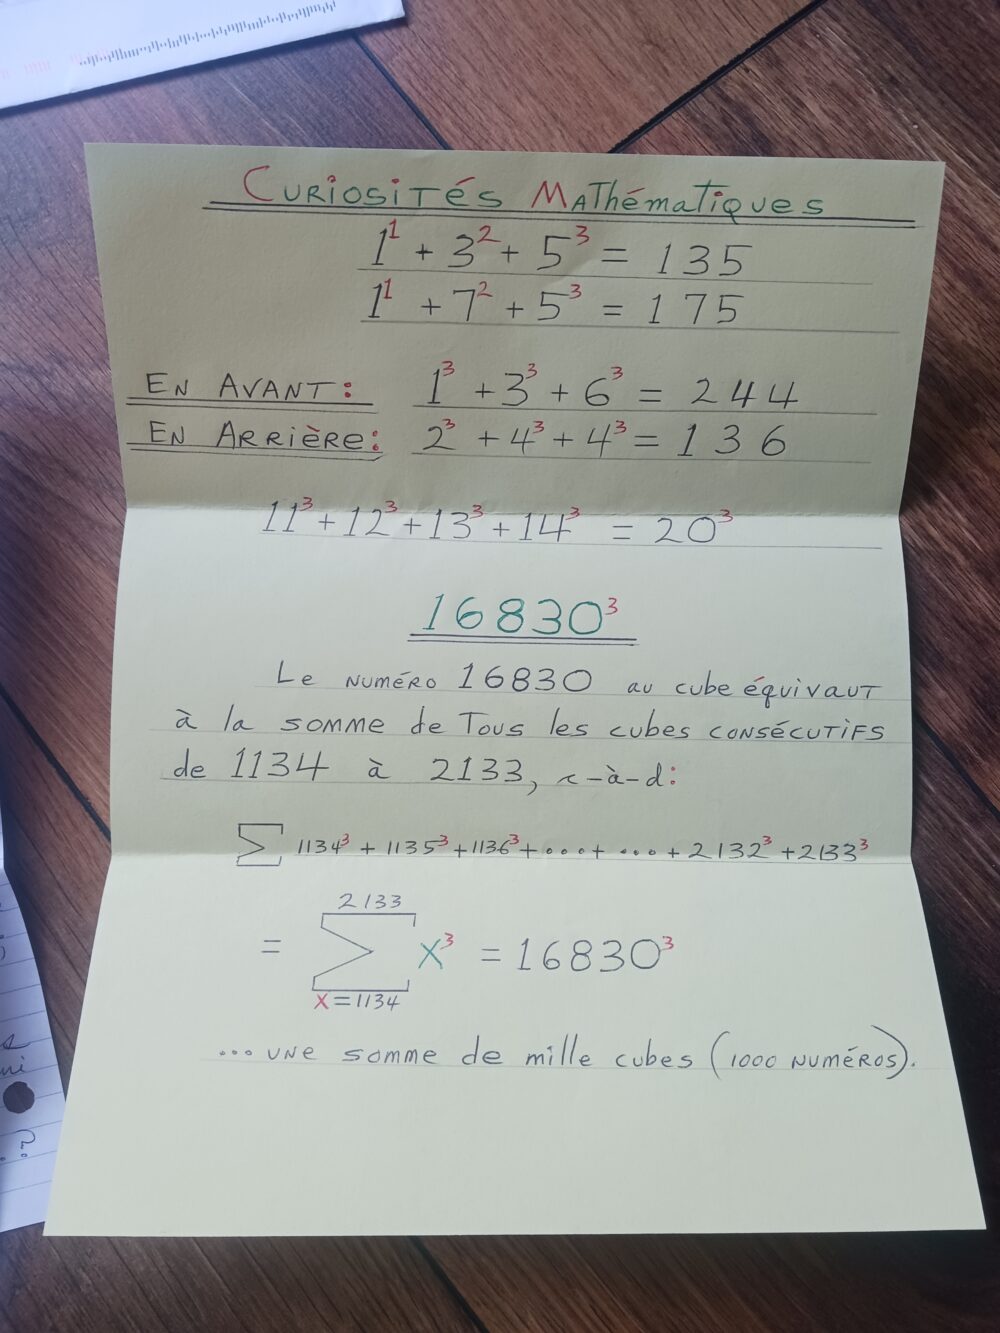 Curiosités Mathématiques
1¹ + 3² + 5³ = 135
1¹ + 7² + 5³ = 175
En Avant: 1³ + 3³ + 6³ = 244
En Arrière: 2³ + 4³ + 4³ = 136
11³ + 12³ + 13³ + 14³ = 20³
16830³
Le numéro 16830 au cube équivaut
à la somme de tous les cubes consécutifs
de 1134 à 2133, c-à-d:
∑ 1134³ + 1135³ + 1136³ + ... + ... + 2132³ + 2133³
2133
= ∑ x³ = 16830³
x = 1134
... une somme de mille cubes (1000 numéros).